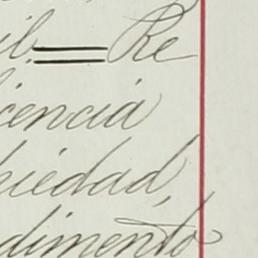 il. = Re
cencia
piedad,
dimento